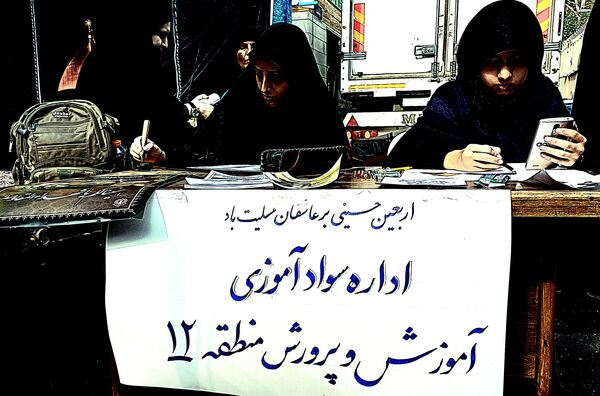 اربعین حسینی بر عاشقان تسلیت باد
اداره سوادآموزی
آموزش و پرورش منطقه ۱۲